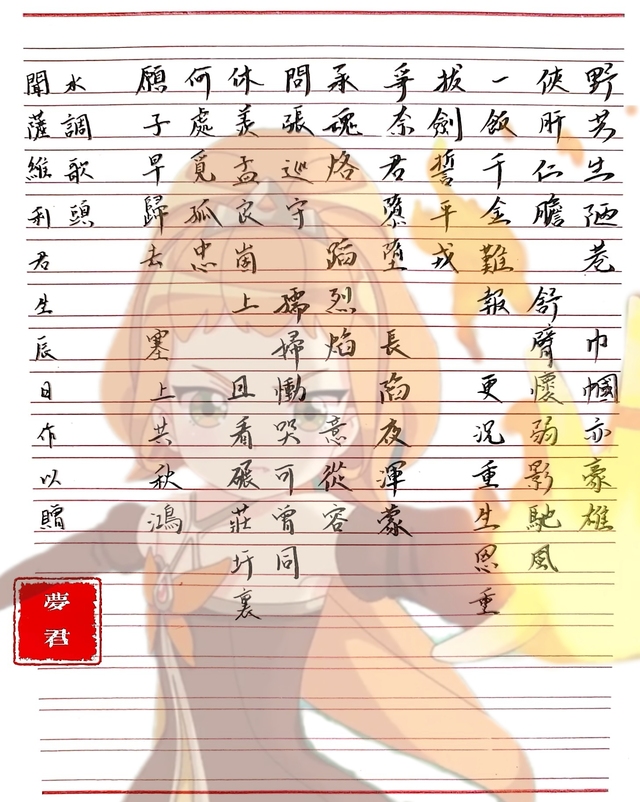 野芳生陋巷 巾幗亦豪雄
俠肝仁膽 舒臂懷弱影馳風
一飯千金難報 更況重生恩重
拔劍誓平戎
爭奈君隳墮 長陷夜渾蒙
承魂烙 蹈烈焰 意從容
問張巡守 孺婦慟哭可曾同
休羨孟良崮上 且看碾莊圩裏
何處覓孤忠
願子早歸去 塞上共秋鴻
水調歌頭
聞薩維利君生辰日作以贈
夢君